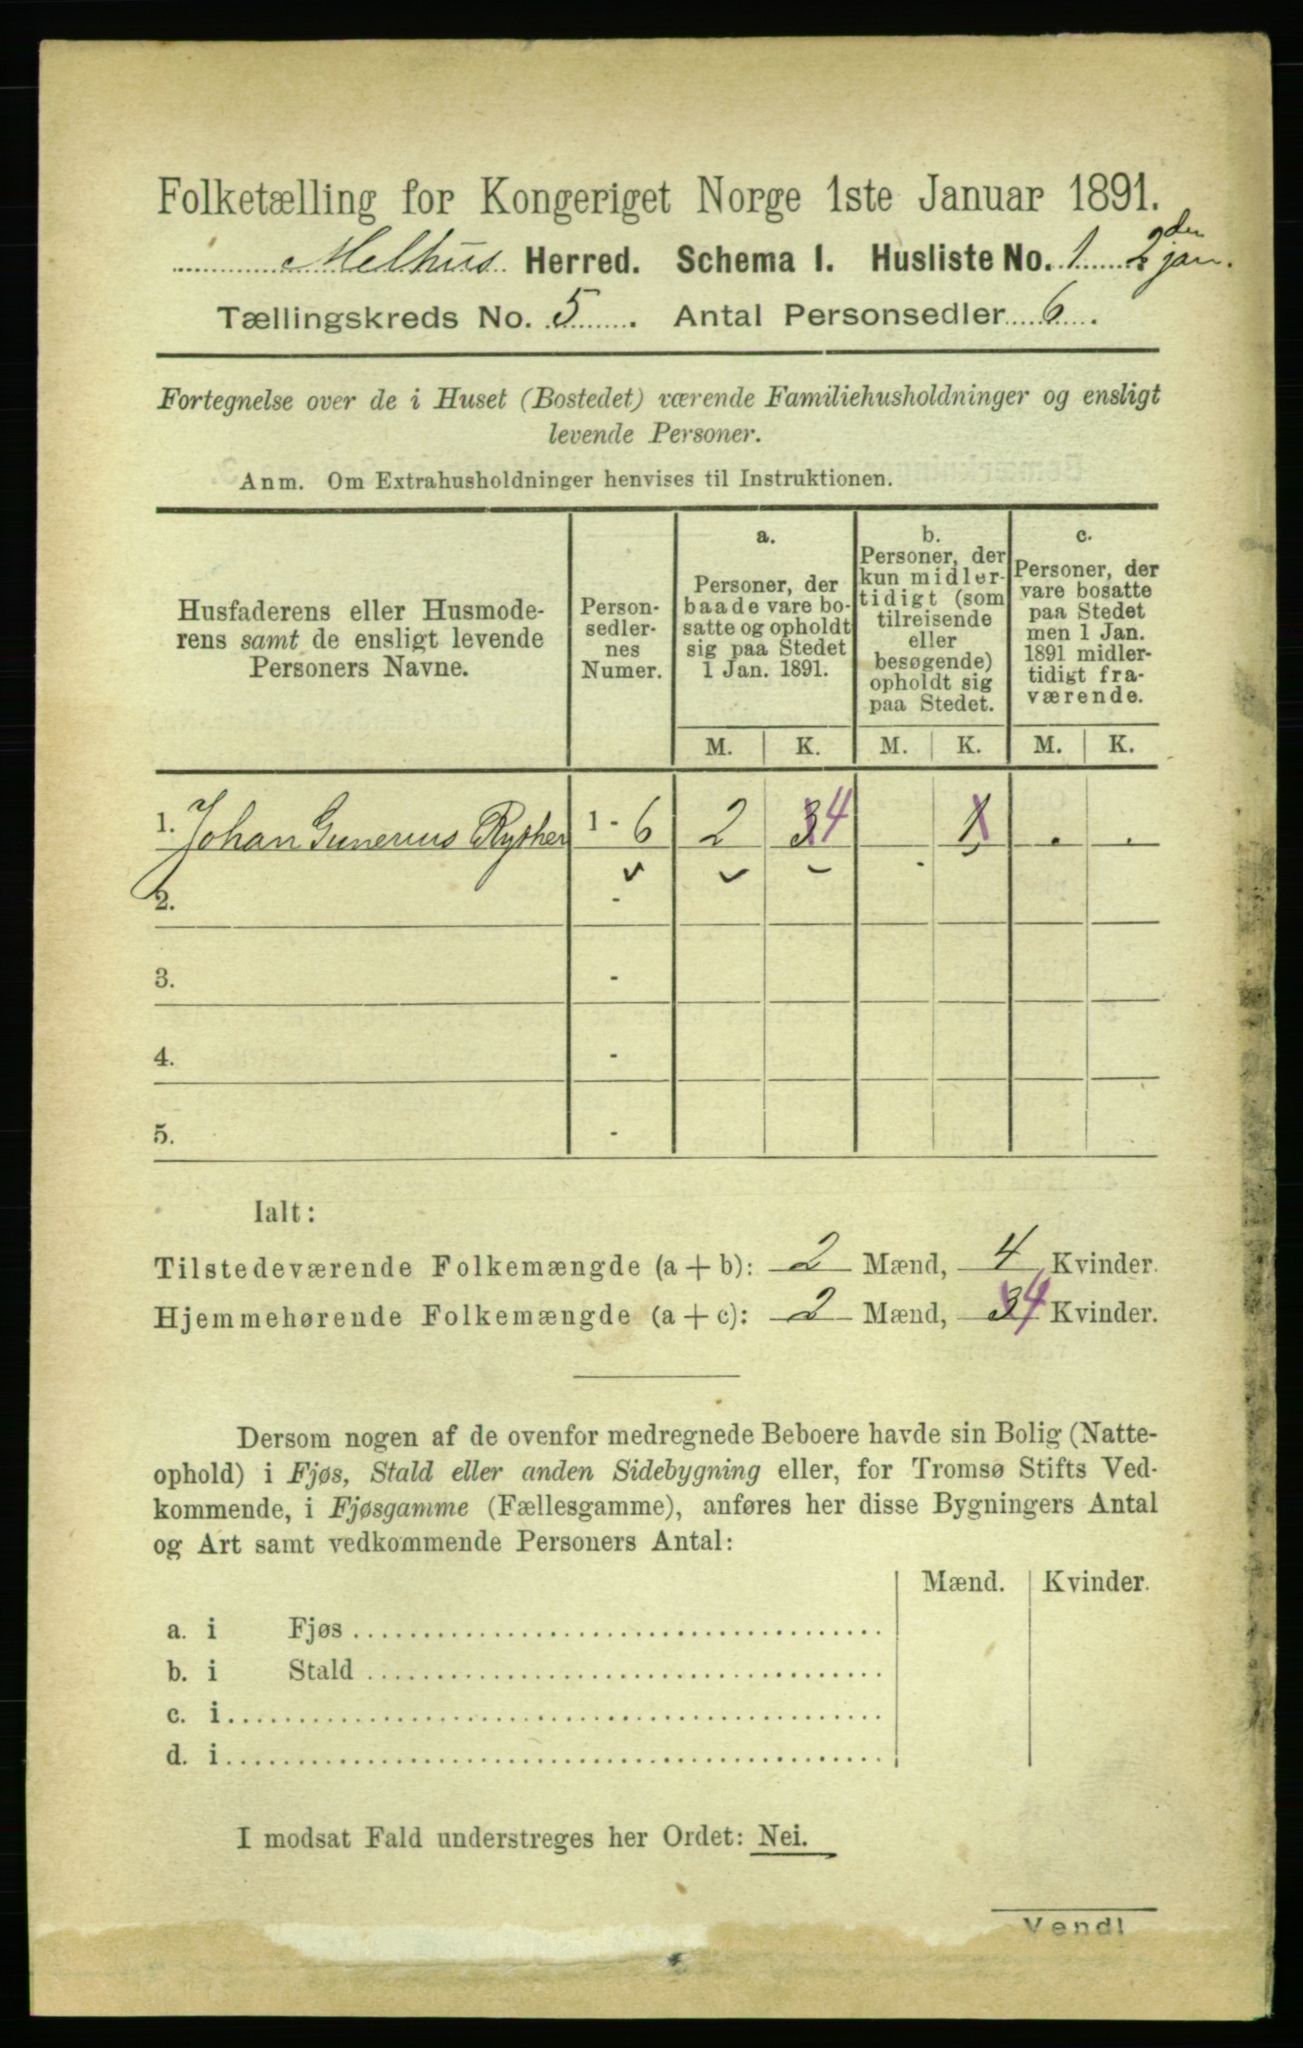 Folketælling for Kongeriget Norge 1ste Januar 1891.
Melhus Herred. Schema I. Husliste No. 1 2den jan.
Tællingskreds No. 5. Antal Personsedler 6.
Fortegnelse over de i Huset (Bostedet) værende Familiehusholdninger og ensligt
levende Personer.
Anm. Om Extrahusholdninger henvises til Instruktionen.
Husfaderens eller Husmode-
rens samt de ensligt levende
Personers Navne.
Person-
sedler-
nes
Numer.
a.
Personer, der
baade vare bo-
satte og opholdt
sig paa Stedet
1 Jan. 1891.
b.
Personer, der
kun midler-
tidigt (som
tilreisende
eller
besøgende)
opholdt sig
paa Stedet.
c.
Personer, der
vare bosatte
paa Stedet
men 1 Jan.
1891 midler-
tidigt fra-
værende.
M. K. M. K. M. K.
1. Johan Gunerius Rysher 1 - 6 2 3 4 1 . .
2. -
3. -
4. -
5. -
Ialt:
Tilstedeværende Folkemængde (a + b): 2 Mænd, 4 Kvinder.
Hjemmehørende Folkemængde (a + c): 2 Mænd, 3 4 Kvinder.
Dersom nogen af de ovenfor medregnede Beboere havde sin Bolig (Natte-
ophold) i Fjøs, Stald eller anden Sidebygning eller, for Tromsø Stifts Ved-
kommende, i Fjøsgamme (Fællesgamme), anføres her disse Bygningers Antal
og Art samt vedkommende Personers Antal:
Mænd. Kvinder.
a. i Fjøs
b. i Stald
c. i
d. i
I modsat Fald understreges her Ordet: Nei.
Vend!